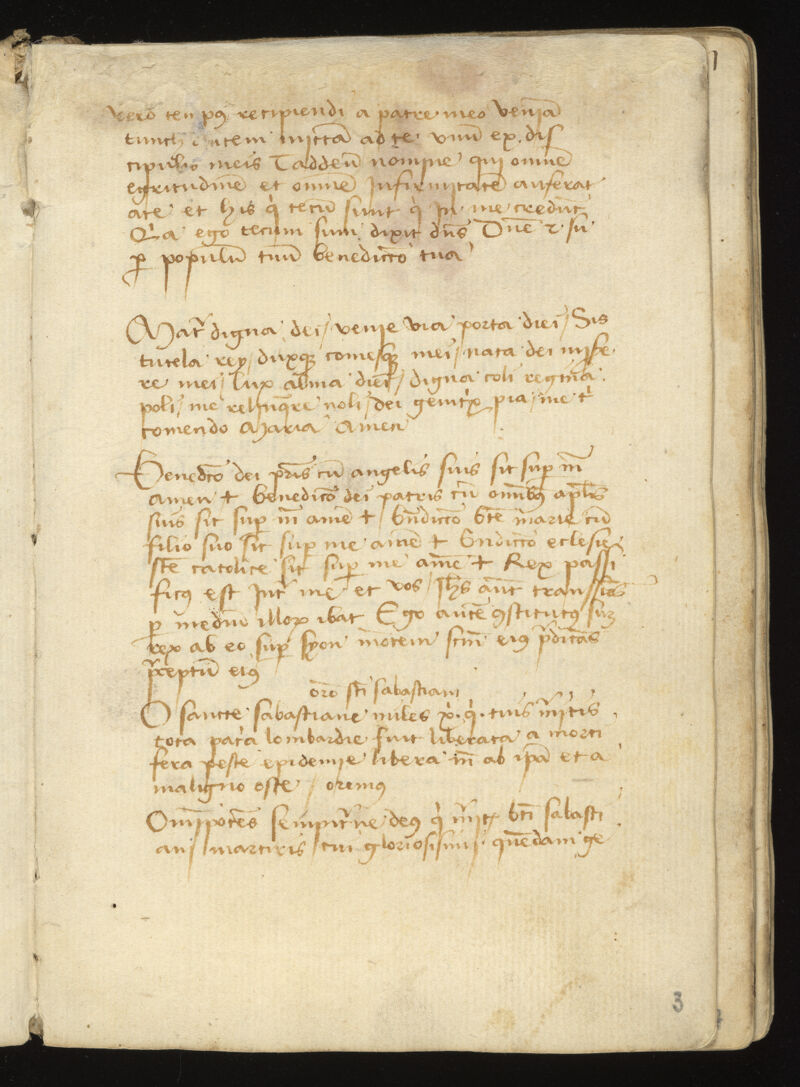 vero ten pꝯ recipiendi a patre meo veniã
tunch autem mittã ad te vnũ ex dis
cipulis meis Taddeũ nomine qui omnẽ
egritudinẽ et omnẽ Infirmitatẽ auferat
ate et his q̇ tecũ sunt q̇ In me credũt
Q̇a ego tecum sum dixit dñs Dñe
ꝑ populũ tuũ benedictõ tua
Mat̃ digna dei / venie via porta diei / Sis
tutela rex / duxqꝫ comesqꝫ mei / nata dei mise
re mei / lux alma diei / digna coli regina
poli / me relinq̃re noli / dei genitⁱx pia / me tⁱ
comendo Maria Amen
Benedictõ dei pr̃is cũ angelis suis sit sup m̃
amen ✝ benedictõ dei patris cũ omĩbꝯ aplĩs
suis sit sup m̃ amẽ ✝ bñdictõ btẽ marie cũ
filio suo sit sup me amẽ ✝ bñdictõ eclesie
stẽ catolice sit sup me amẽ ✝ Rex passi
ficꝯ est Int̃ me et vos / Ihs aut̃ transiẽs
ꝑ mediũ illoꝝ ibat Ego autẽ ꝯstitutꝯ suꝫ
rex ab eo sup syon mõtem scm̃ eiꝯ p̃dicãs
p̃ceptũ eiꝯ
orõ sti sabastiani
O sancte sabastiane miles q̇ tuis m̃itis
tota pat̃a lombardie fuit liberata a morti
fera peste epidemie libera m̃ ab ip̃a et a
maligno oste / oremꝯ
Omĩpotẽs sempit̃ne deꝯ q̇ m̃itꝭ bti sabasti
ani martiris tui gloriosisimi quẽdam ge
3